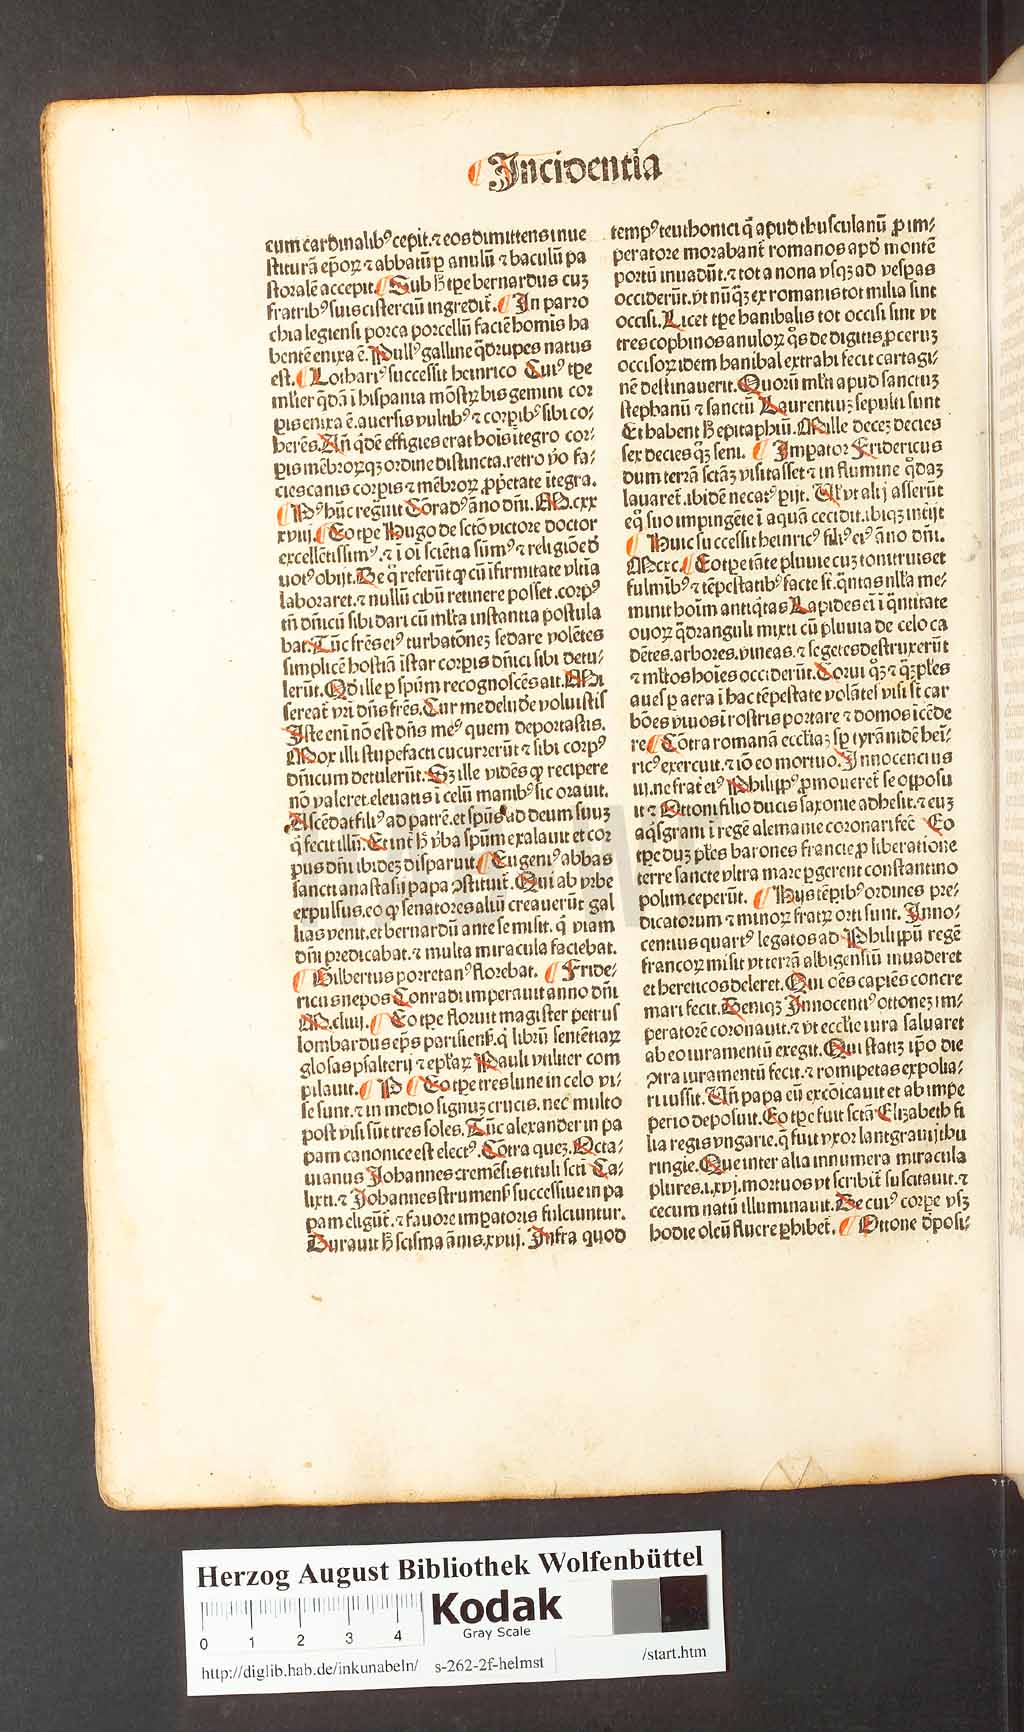 ¶ Incidentia
cum cardinalibꝰ cepit. ⁊ eos dimittens inue
stiturā ep̄oꝝ ⁊ abbatū ꝑ anulū ⁊ baculū pa
storalē accepit. ¶ Sub h̄ tp̄e bernardus cuʒ
fratribꝰ suis cisterciū ingredit̄. ¶ In parro
chia legiensi porca porcellū faciē hom̄is ha
bentē enixa ē. Pullꝰ galline q̄drupes natus
est. ¶ Lothariꝰ successit heinrico Cuiꝰ tp̄e
mlier q̄dā ī hispania mōstꝝ bis gemini cor
pis enixa ē. auersis vultibꝰ ⁊ corꝑibꝰ sibi co⸗
herēs. An̄ q̄dē effigies erat hoīs ītegro cor⸗
pis mēbroꝝqʒ ordine distincta. retro v̄o fa⸗
cies canis corꝑis ⁊ mēbroꝝ ꝓp̄etate ītegra.
¶ Pꝰ hūc regnit Cōradꝰ āno dn̄i. M.cxx
xviij. ¶ Eo tp̄e Hugo de sctō victore doctor
excellētissimꝰ. ⁊ ī oī sciētia sūmꝰ ⁊ religiōe d̄
uotꝰ obijt. De q̄ referūt ꝙ cū īfirmitate vltīa
laboraret. ⁊ nullū cibū retinere posset. corpꝰ
tn̄ dn̄icū sibi dari cū ml̄ta instantia postula
bat. Tūc frēs eiꝰ turbatōneʒ sedare volētes
simplicē hostiā īstar corꝑis dn̄ici sibi detu⸗
lerūt. Qd̄ ille ꝑ spūm recognoscēs ait. Mi
sereat̄ vr̄i dn̄s frēs. Cur me deludē voluistis
Iste enī nō est dn̄s meꝰ quem deportastis.
Mox illi stupefacti cucurrerūt ⁊ sibi corpꝰ
dn̄icum detulerūt. Sʒ ille vidēs ꝙ recipere
nō valeret. eleuatis ī celū manibꝰ sic orauit.
Ascēdat filiꝰ ad patrē. et spūs ad deum suuʒ
q̄ fecit illū. Et int̄ h̄ v̄ba spūm exalauit et cor
pus dn̄i ibideʒ disparuit. ¶ Eugeniꝰ abbas
sancti anastasij papa ↄstituit̄. Qui ab vrbe
expulsus. eo ꝙ senatores aliū creauerūt gal
lias venit. et bernardū ante se misit. q̄ viam
dn̄i predicabat. ⁊ multa miracula faciebat.
¶ Gilbertus porretanꝰ florebat. ¶ Fride⸗
ricus nepos Conradi imperauit anno dn̄i
M.cliiij. ¶ Eo tp̄e floruit magister petrus
lombardus ep̄s parisiens̄. q̄ librū sentētiaꝝ
glosas psalterij ⁊ ep̄laꝝ Pauli vtiliter com
pilauit. ¶ P ¶ Eo tp̄e tres lune in celo vi⸗
se sunt. ⁊ in medio signuʒ crucis. nec multo
post visi sūt tres soles. Tūc alexander in pa
pam canonice est electꝰ. Cōtra queʒ. Octa⸗
uianus Johannes cremēsis tituli scti Ca⸗
lixti. ⁊ Johannes strumens̄ successiue in pa
pam eligūt̄. ⁊ fauore imꝑatoris fulciuntur.
Durauit h̄ scisma ānis. xviij. Infra quod
tempꝰ teuthonici q̄ apud thusculanū ꝓ im⸗
peratore morabant̄ romanos apd̄ montē
portū inuadūt. ⁊ tot a nona vsqʒ ad vesꝑas
occiderūt. vt nūq̄ʒ ex romanis tot milia sint
occisi. Licet tp̄e hanibalis tot occisi sint vt
tres cophinos anuloꝝ q̄s de digitis ꝓceruʒ
occisoꝝ idem hanibal extrahi fecit cartagi⸗
nē destinauerit. Quorū ml̄ti apud sanctuʒ
stephanū ⁊ sanctū Laurentiuʒ sepulti sunt
Et habent h̄ epitaphiū. Mille deceʒ decies
sex decies q̄ʒ seni. ¶ Imꝑator Fridericus
dum terrā sctāʒ visitasset ⁊ in flumine q̄daʒ
lauaret̄. ibidē necatꝰ ꝑijt. Ul̓ vt alij asserūt
eq̄ suo impingēte ī aquā cecidit. ibiqʒ intijt
¶ Huic successit heinricꝰ filiꝰ eiꝰ āno dn̄i.
Mcxc. ¶ Eo tp̄e tāte pluuie cuʒ tonitruis et
fulmībꝰ ⁊ tēpestatibꝰ facte st̄. q̄ntas nl̄la me⸗
minit hoīm antiq̄tas Lapides eī ī q̄ntitate
ouoꝝ q̄dranguli mixti cū pluuia de celo ca
dētes. arbores. vineas. ⁊ segetes destruxerūt
⁊ ml̄tos hoīes occiderūt. Corui q̄ʒ ⁊ q̄ʒ pl̄es
aues ꝑ aera ī hac tēpestate volātes visi st̄ car
bōes viuos ī rostris portare ⁊ domos īcēde
re ¶ Cōtra romanā eccl̄iaʒ sꝑ tyrānidē heī⸗
ricꝰ exercuit. ⁊ iō eo mortuo. Innocencius
iij. ne frat̄ eiꝰ Philippꝰ ꝓmoueret̄ se opposu
it ⁊ Ottoni filio ducis saxonie adhesit. ⁊ euʒ
aq̄sgrani ī regē alemanie coronari fec̄ Eo
tp̄e duʒ pl̄es barones francie ꝓ liberatione
terre sancte vltra mare ꝑgerent constantino
polim ceperūt. ¶ Hijs tēꝑibꝰ ordines pre⸗
dicatorum ⁊ minoꝝ fratꝝ orti sunt. Inno⸗
centius quartꝰ legatos ad Philippū regē
francoꝝ misit vt terrā albigensiū inuaderet
et hereticos deleret. Qui oēs capiēs concre
mari fecit. Deniqʒ Innocentiꝰ ottoneʒ im⸗
peratorē coronauit. ⁊ vt eccl̄ie iura saluaret
ab eo iuramentū exegit. Qui statiʒ ip̄o die
ↄtra iuramentū fecit. ⁊ romipetas expolia⸗
ri iussit. Un̄ papa eū excōicauit et ab impe
perio deposuit. Eo tp̄e fuit sctā Elizabeth fi
lia regis vngarie. q̄ fuit vxor lantgrauij thu
ringie. Que inter alia innumera miracula
plures. i. xvj. mortuos vt scribit̄ suscitauit. ⁊
cecum natū illuminauit. De cuiꝰ corꝑe vsʒ
hodie oleū fluere ꝑhibet̄. ¶ Ottone d̄posi⸗
Herzog August Bibliothek Wolfenbüttel
0 1 2 3 4
Kodak
Gray Scale
http://diglib.hab.de/inkunabeln/ s-262-2f-helmst /start.htm